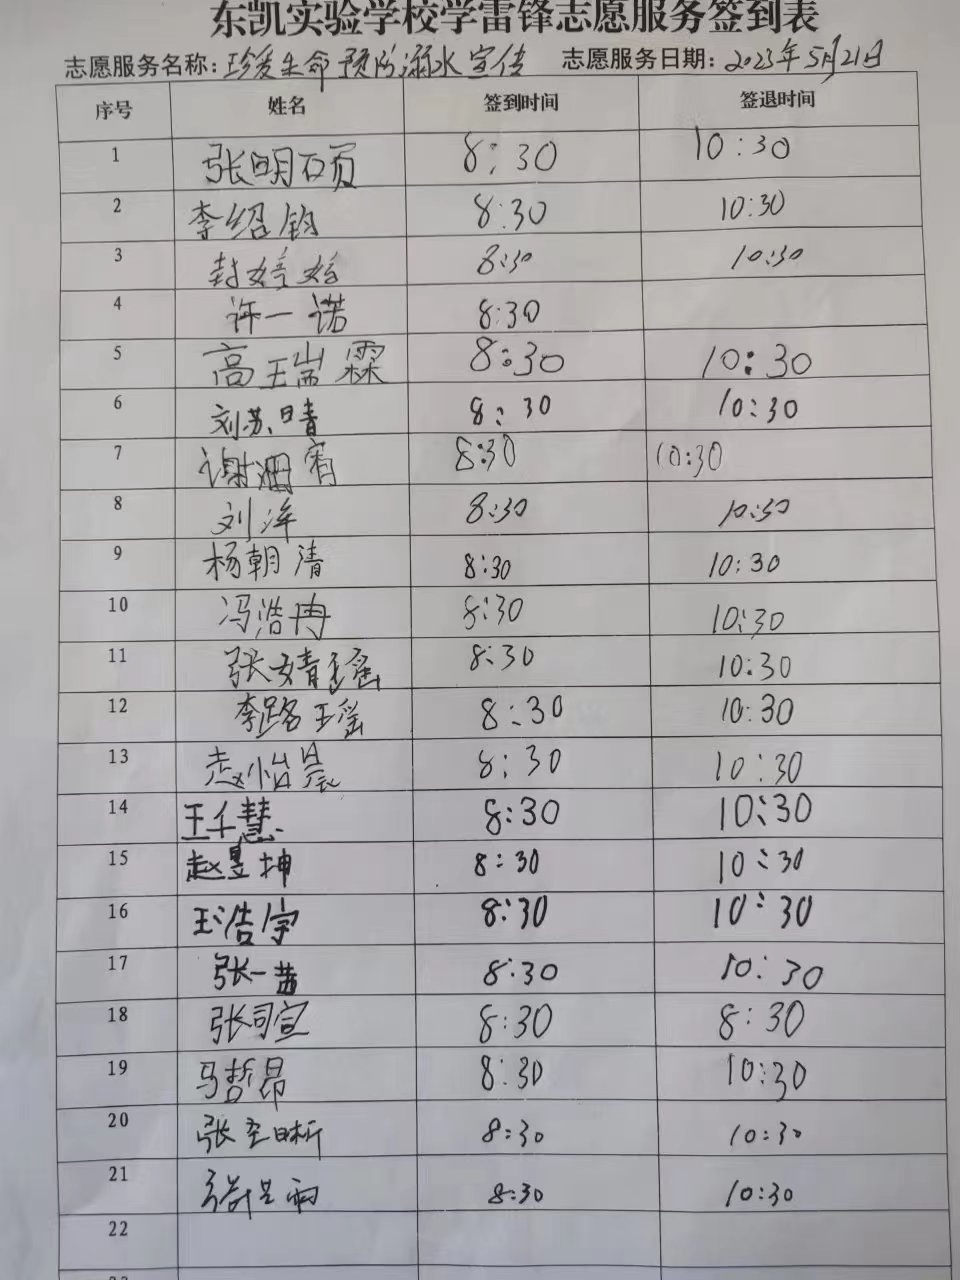 东凯实验学校学雷锋志愿服务签到表
志愿服务名称：珍爱生命 预防溺水宣传 志愿服务日期：2023年5月21日
序号 姓名 签到时间 签退时间
1 张明硕 8:30 10:30
2 李绍钧 8:30 10:30
3 封婷婷 8:30 10:30
4 许一诺 8:30
5 高瑞霖 8:30 10:30
6 刘苏晴 8:30 10:30
7 谢湘宥 8:30 10:30
8 刘洋 8:30 10:30
9 杨朝清 8:30 10:30
10 冯浩冉 8:30 10:30
11 张婧瑶 8:30 10:30
12 李璐瑶 8:30 10:30
13 赵怡晨 8:30 10:30
14 王千慧 8:30 10:30
15 赵昱坤 8:30 10:30
16 王浩宇 8:30 10:30
17 张一茜 8:30 10:30
18 张司宣 8:30 8:30
19 马哲昂 8:30 10:30
20 张圣晰 8:30 10:30
21 8:30 10:30
22